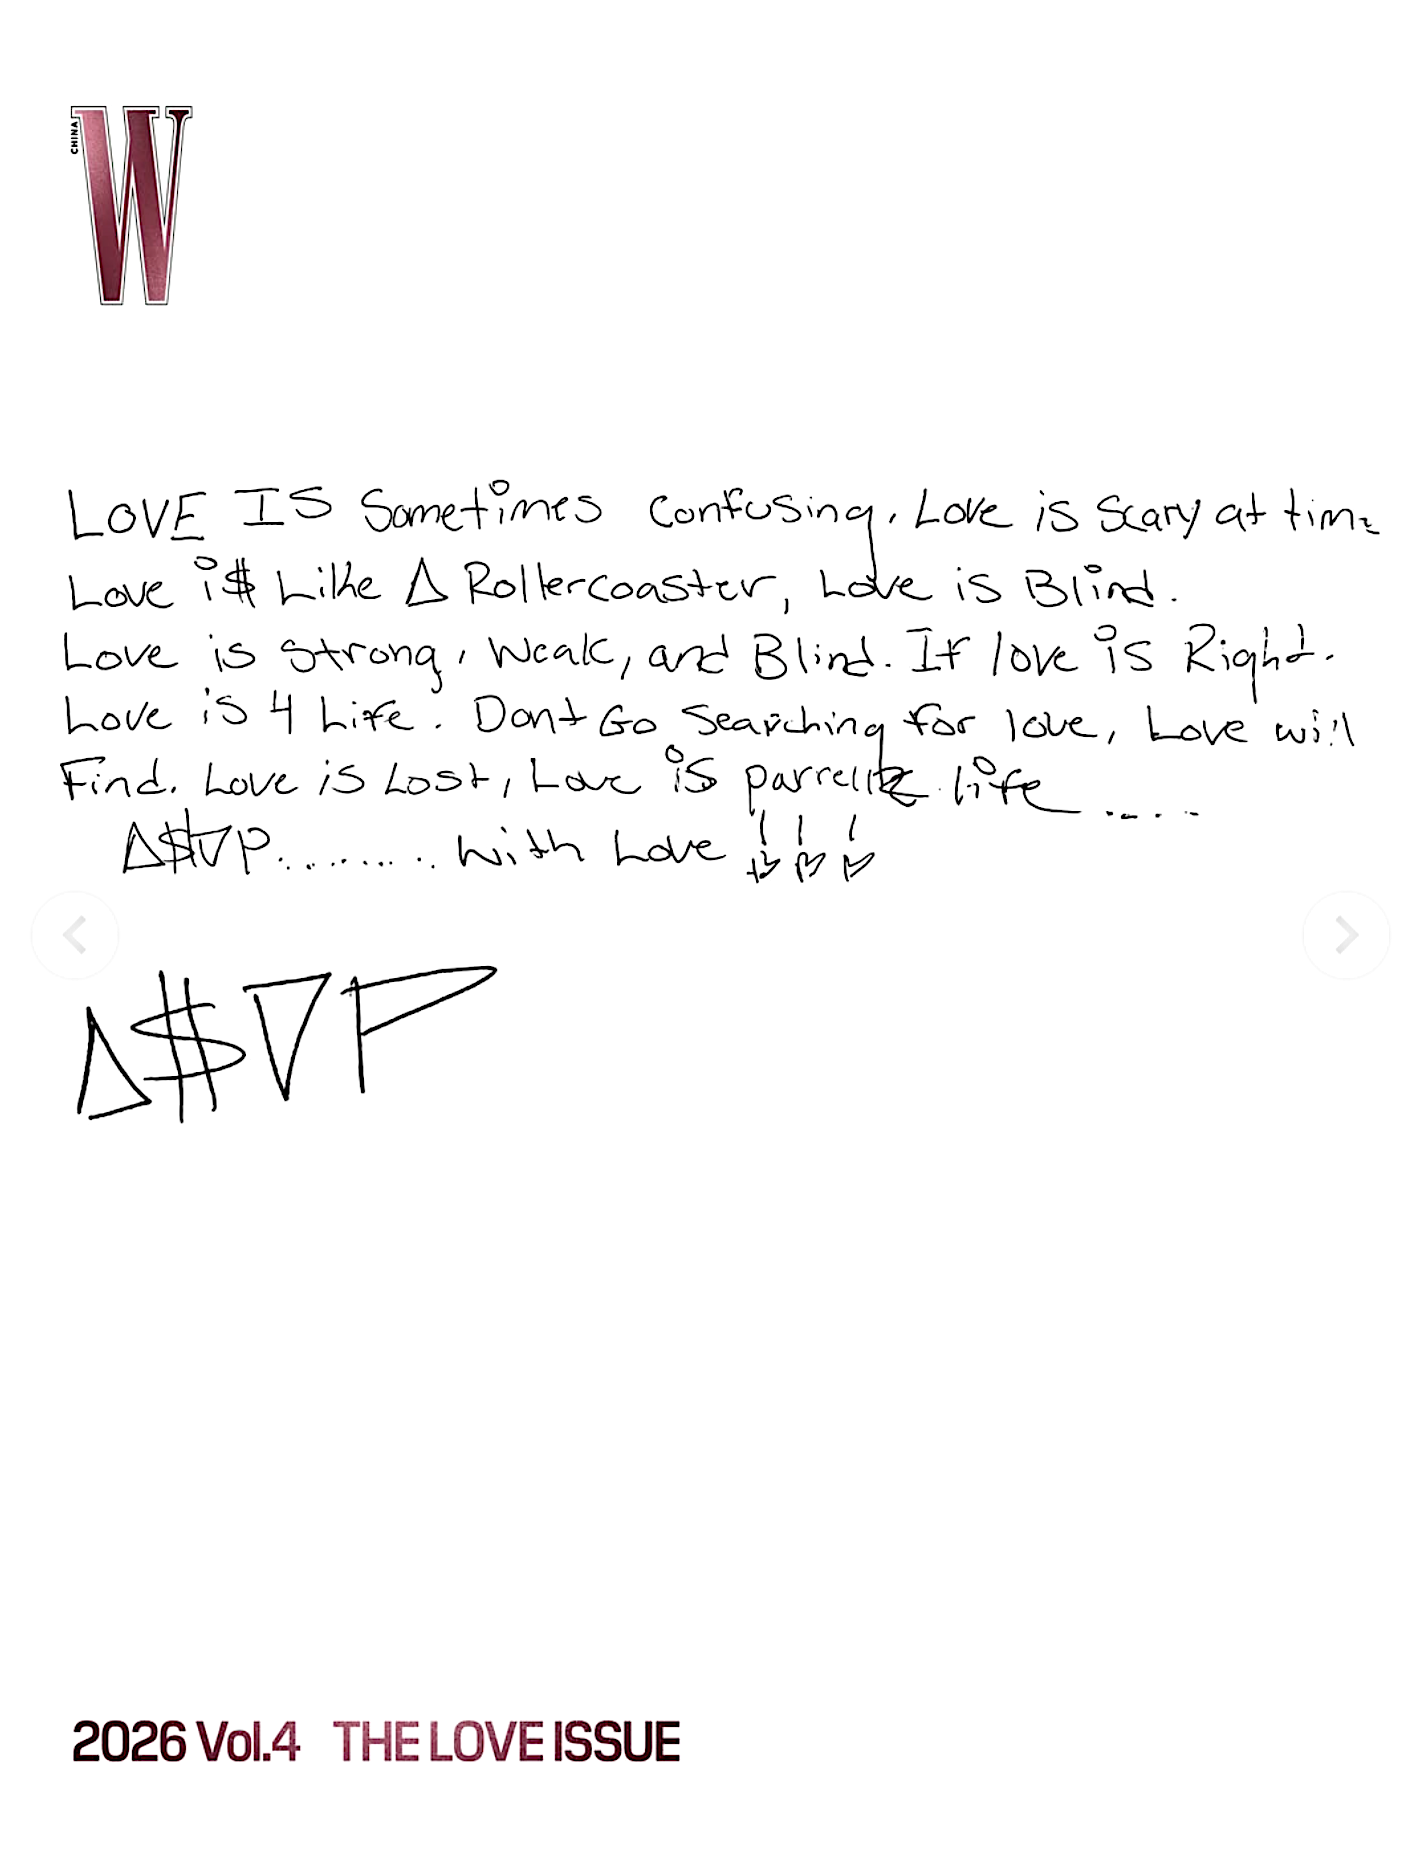 CHINA
W
LOVE IS Sometimes Confusing, Love is Scary at time
Love i$ Like Δ Rollercoaster, Love is Blind.
Love is strong, Weak, and Blind. If love is Right.
Love is 4 Life. Dont Go Searching for love, Love will
Find. Love is Lost, Love is life.....
Δ$∇P......... With Love !!!
Δ$∇P
2026 Vol.4 THE LOVE ISSUE